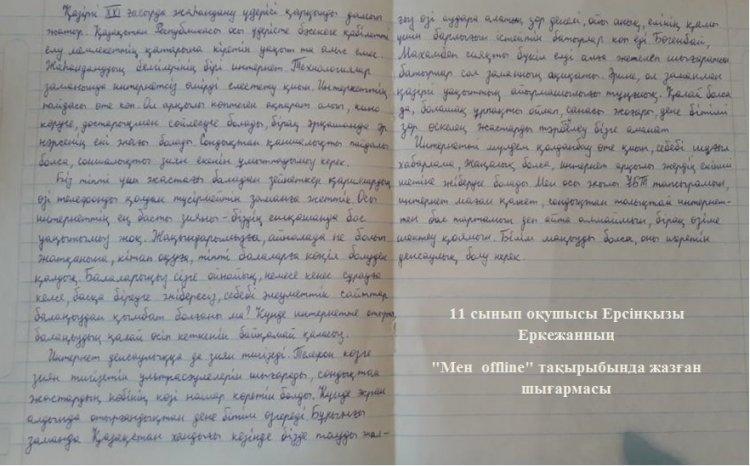 Қазіргі XXI ғасырда жаһандану үдерісі қарқынды дамып
жатыр. Қазақстан Республикасы осы үдерісте бәсекеге қабілетті
елу мемлекеттің қатарына кіретін уақыт та алыс емес.
Жаһанданудың белгілерінің бірі интернет. Технологиялар
заманында интернетсіз өмірді елестету қиын. Интернеттің
пайдасы өте көп. Ол арқылы көптеген ақпарат алып, кино
көруге, достарыңмен сөйлесуге болады, бірақ әрқашанда әр
нәрсенің екі жағы болады. Сондықтан қаншалықты пайдалы
болса, соншалықты зиян екенін ұмытпауымыз керек.
Біз тіпті үш жастағы баладан зейнеткер қариялардың
өзі телефонды қолдан түсірмейтін заманға жеттік. Осы
интернеттің ең басты зияны - біздің ешқашанда бос
уақытымыз жоқ. Жақындарымызға, айналада не болып
жатқанына, кітап оқуға, тіпті балаларға көңіл бөлуден
қалдық. Балаларыңыз сізге ойнайық, немесе кеңес сұрауға
келсе, басқа біреуге жібересіз, себебі әлеуметтік сайттар
балаңыздан қымбат болғаны ма? Күнде интернетте отырып,
балаңыздың қалай өсіп кеткенін байқамай қаласың.
Интернет денсаулыққа да зиян тигізеді. Телефон көзге
зиян тигізетін ультрасәулелерін шығарады, сондықтан
жастардың көбінің көзі нашар көретін болды. Күнде экран
алдында отырғандықтан дене бітімі өзгереді. Бұрынғы
заманда Қазақстан хандығы кезінде бізде талуды жал-
ғыз өзі аудара алатын, зор денелі, ойы анық, елінің қамы
үшін барлығын істейтін батырлар көп еді. Бөгенбай,
Махамбет сияқты бүкіл елді алға жетелеп шығаратын
батырлар сол заманның ақиқаты. Әрине, ол заманмен
қазіргі уақыттың айырмашылығы тұңғиық. Қалай болса
да, болашақ ұрпақты ойлап, санасы жоғары, дене бітімі
зор өскелең жастарды тәрбиелеу бізге аманат
Интернетті мүлдем қолданбау өте қиын, себебі шұғыл
хабарлама, жаңалық болса, интернет арқылы жердің екінші
шетіне жіберуге болады. Мен осы жылы ҰБТ тапсырамын,
интернет маған қажет, сондықтан толықтай интернет-
тен бас тартамын деп айта алмаймын, бірақ өзіме
шектеу қоямын. Білім маңызды болса, оны үйретін
денсаулық болу керек.
11 сынып оқушысы Ерсінқызы
Еркежанның
"Мен offline" тақырыбында жазған
шығармасы